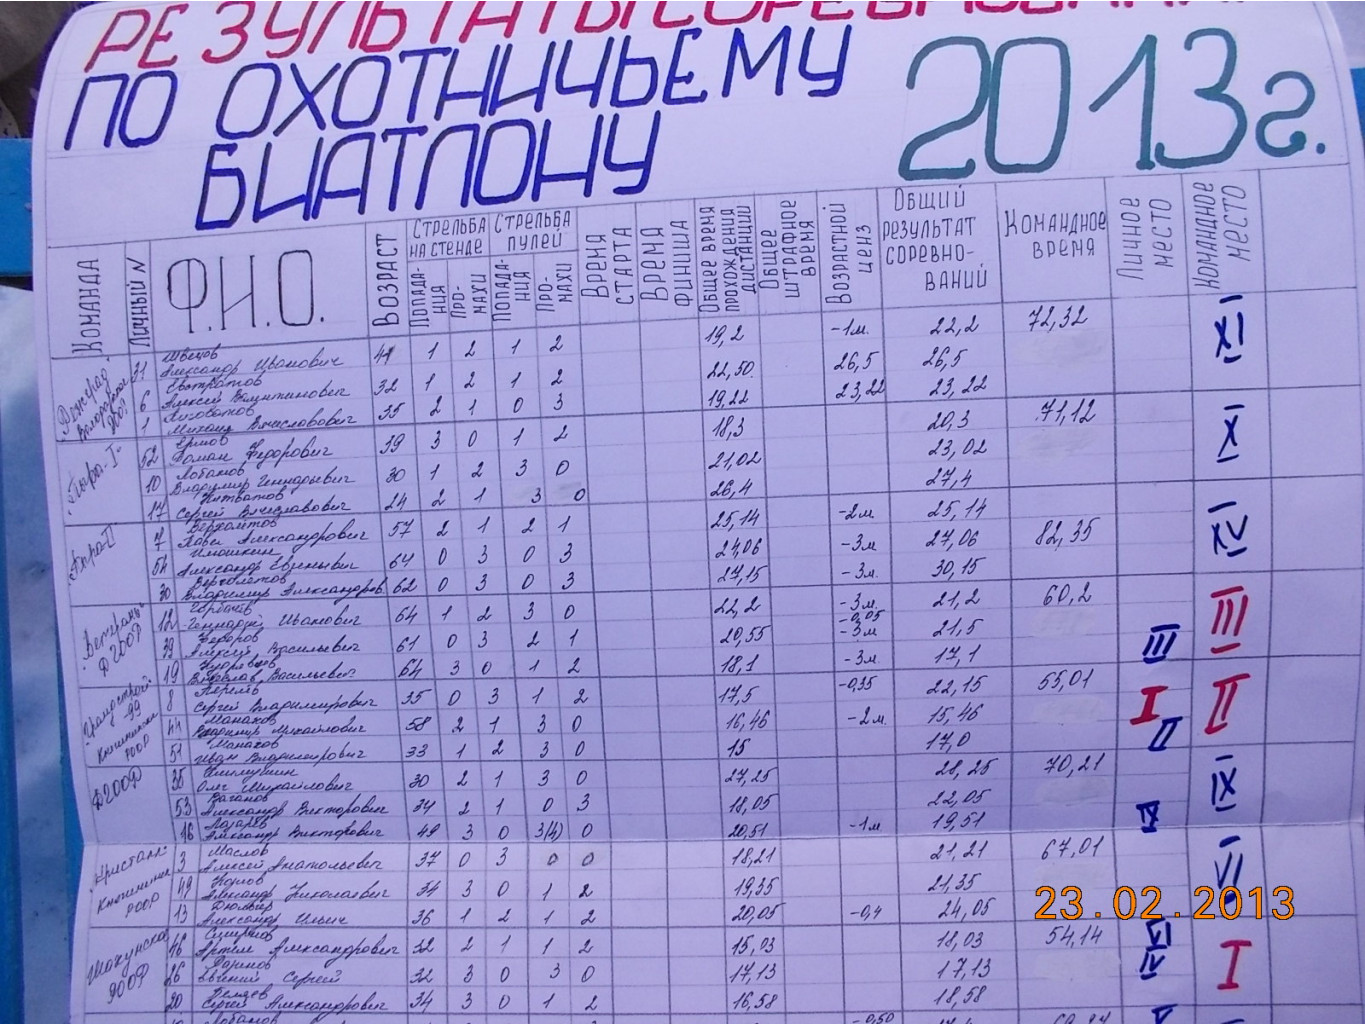 РЕЗУЛЬТАТЫ СОРЕВНОВАНИЙ
ПО ОХОТНИЧЬЕМУ 2013г.
БИАТЛОНУ
КОМАНДА ЛИЧНЫЙ N Ф.И.О. ВОЗРАСТ СТРЕЛЬБА НА СТЕНДЕ ПОПАДАНИЯ ПРОМАХИ СТРЕЛЬБА ПУЛЕЙ ПОПАДАНИЯ ПРОМАХИ ВРЕМЯ СТАРТА ВРЕМЯ ФИНИША ОБЩЕЕ ВРЕМЯ ПРОХОЖДЕНИЯ ДИСТАНЦИИ ОБЩЕЕ ШТРАФНОЕ ВРЕМЯ ВОЗРАСТНОЙ ЦЕНЗ ОБЩИЙ РЕЗУЛЬТАТ СОРЕВНОВАНИЙ КОМАНДНОЕ ВРЕМЯ ЛИЧНОЕ МЕСТО КОМАНДНОЕ МЕСТО
31 Швецов Александр Иванович 1 2 1 2 19,2 -1м. 22,2 72,32 XI
6 Алексей 32 1 2 1 2 22,50 26,5 26,5
1 Михаил Вячеславович 35 2 1 0 3 19,22 23,22 23,22
52 Роман Федорович 39 3 0 1 2 18,3 20,3 71,12 X
10 Лобанов Владимир Геннадьевич 30 1 2 3 0 21,02 23,02
17 Сергей Вячеславович 24 2 1 3 0 26,4 27,4
7 Верхолетов Павел Александрович 57 2 1 2 1 25,14 -2м. 25,14 82,35 XV
54 Александр Евгеньевич 64 0 3 0 3 27,06 -3м 27,06
30 Верхолетов Владимир Александров 62 0 3 0 3 27,15 -3м. 30,15
"Ветераны" 12 Горбачёв Геннадий Иванович 64 1 2 3 0 22,2 -3м. -0,05 21,2 60,2 III
39 Алексей Васильевич 61 0 3 2 1 20,55 -3м 21,5
19 Васильевич 64 3 0 1 2 18,1 -3м. 17,1 III
8 Сергей Владимирович 35 0 3 1 2 17,5 -0,35 22,15 55,01 II
44 Манахов Владимир Михайлович 58 2 1 3 0 16,46 -2м. 15,46 I
51 Манахов Иван Владимирович 33 1 2 3 0 15 17,0 II
35 Олег Михайлович 30 2 1 3 0 27,25 28,25 70,21 IX
53 Ваганов Александр Викторович 34 2 1 0 3 18,05 22,05
16 Лазарев Александр Викторович 49 3 0 3(4) 0 20,51 -1м 19,51 IX
"Кристалл" 3 Маслов Алексей Анатольевич 37 0 3 0 0 18,21 21,21 67,01 VI
49 Александр Николаевич 34 3 0 1 2 19,35 21,35
13 Александр Ильич 36 1 2 1 2 20,05 -0,4 24,05
23.02.2013
Шахунское 46 Смирнов Артем Александрович 32 2 1 1 2 15,03 18,03 54,14 VI I
26 Евгений Сергей 32 3 0 3 0 17,13 17,13 IV
20 Беляев Сергей Александрович 34 3 0 1 2 16,58 18,58
Лобанов -0,50